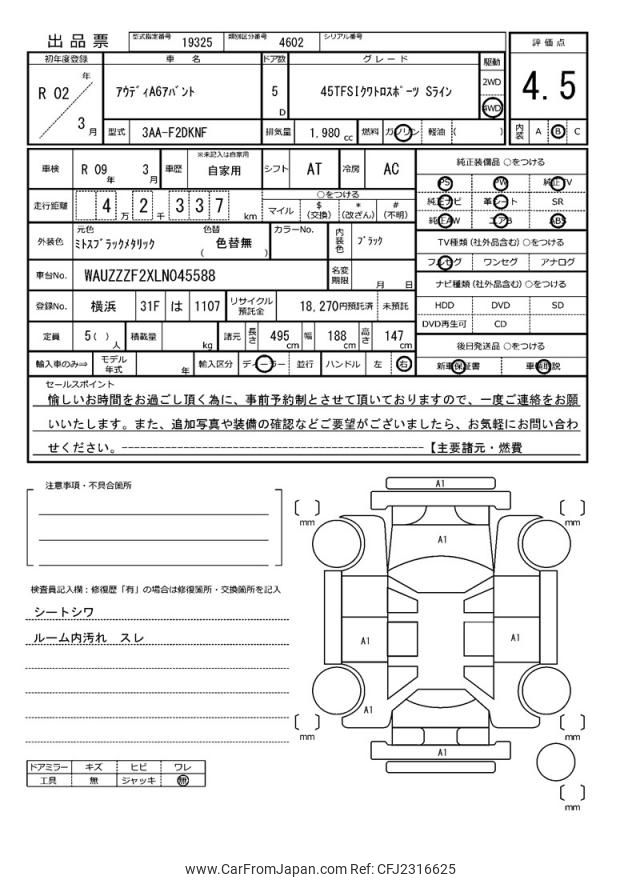 出品票 型式指定番号 19325 類別区分番号 4602 シリアル番号
初年度登録 車名 ドア数 グレード 駆動 評価点
R 02 年 3 月 アウディA6アバント 5 D 45TFSIクワトロスポーツ Sライン 2WD 4WD 4.5
型式 3AA-F2DKNF 排気量 1.980 cc 燃料 ガソリン 軽油 ( ) 内装 A B C
車検 R 09 年 3 月 車歴 ※未記入は自家用 自家用 シフト AT 冷房 AC 純正装備品 ○をつける
PS PW 純正TV
走行距離 4 万 2 千 3 3 7 km ○をつける
マイル $ (交換) * (改ざん) # (不明)
純正ナビ 革シート SR
純正AW エアB ABS
外装色 元色 ミトスブラックメタリック 色替 色替無 ( ) カラーNo. 内装色 ブラック
TV種類 (社外品含む) ○をつける
フルセグ ワンセグ アナログ
車台No. WAUZZZF2XLN045588 名変期限 月 日
ナビ種類 (社外品含む) ○をつける
登録No. 横浜 31F は 1107 リサイクル預託金 18,270円預託済 未預託
HDD DVD SD
DVD再生可 CD
定員 5( ) 人 積載量 kg 諸元 長さ 495 cm 幅 188 cm 高さ 147 cm
後日発送品 ○をつける
輸入車のみ⇨ モデル年式 年 輸入区分 ディーラー 並行 ハンドル 左 右
新車保証書 車輌取説
セールスポイント
愉しいお時間をお過ごし頂く為に、事前予約制とさせて頂いておりますので、一度ご連絡をお願
いいたします。また、追加写真や装備の確認などご要望がございましたら、お気軽にお問い合わ
せください。------------------------------------------------【主要諸元・燃費
注意事項・不具合箇所
検査員記入欄：修復歴「有」の場合は修復箇所・交換箇所を記入
シートシワ
ルーム内汚れ スレ
A1
A1
A1
A1
A1
A1
mm
mm
mm
mm
mm
ドアミラー キズ ヒビ ワレ
工具 無 ジャッキ 無
www.CarFromJapan.com Ref: CFJ2316625